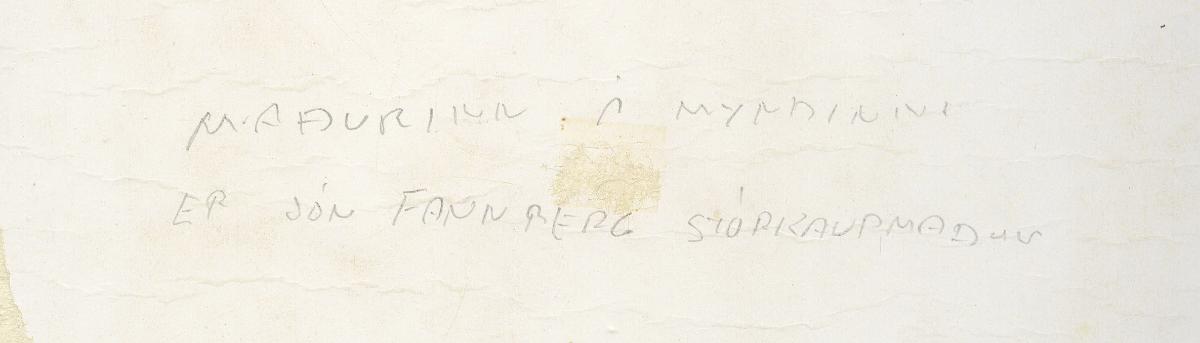 MAÐURINN Á MYNDINNI
ER JÓN FANNBERG STÓRKAUPMAÐUR